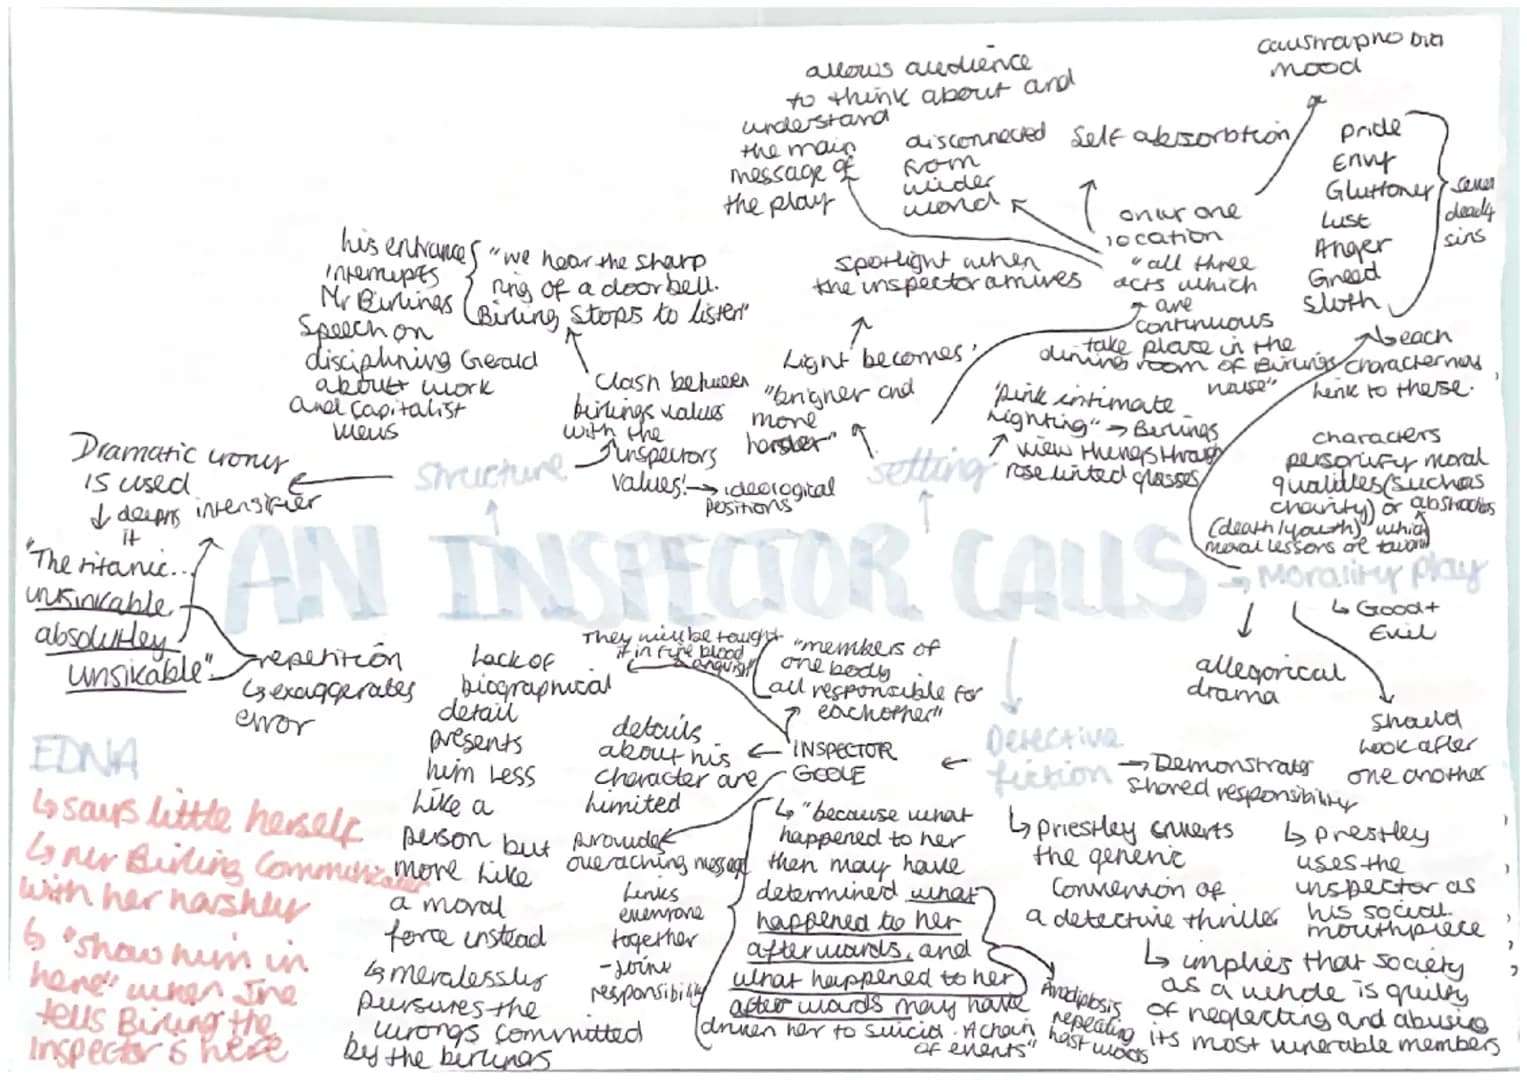 AN INSPECTOR CALLS
Structure
his entrance
interrupts
Mr Birlings
Speech on
disciplining Gerald
about work
and capitalist
views
"we hear the sharp
ring of a doorbell.
Birling stops to listen"
Clash between
birlings values
with the
inspectors
values! → ideological
positions"
Dramatic irony
is used
↓ deepns intensifier
it
"The titanic...
unsinkable
absolutley
unsikable"
repetition
↳ exaggerates
error
setting
allows audience
to think about and
understand
the main
message of
the play
disconnected
from
wider
world
Self absorbtion
causwaphobia
mood
only one
location
"all three
acts which
are
continuous
take place in the
dinning room of Birlings
house"
spotlight when
the inspector arrives
Light becomes
"brigner and
more
harsher"
"pink intimate
lighting" → Birlings
view things through
rose tinted glasses
pride
Envy
Gluttoney
Lust
Anger
Greed
Sloth
seven
deadly
sins
↳ each
character has
link to these.
characters
personify moral
qualities (such as
charity) or abstractios
(death/youth) which
moral lessons are tavard
→ Morality play
↳ Good +
Evil
allegorical
drama
should
look after
one another
Detective
fiction
→ Demonstrats
shared responsibility
↳ priestley cnverts
the generic
convention of
a detective thriller
↳ prestley
uses the
inspector as
his social
mouthpiece
↳ implies that society
as a whole is guilty
of neglecting and abusing
its most vunerable members
INSPECTOR
GOOLE
They will be taught
it in fire blood
anguish"
"members of
one body
all responsible for
eachother"
details
about his
character are
limited
Lack of
biographical
detail
presents
him less
like a
person but
more like
a moral
force instead
↳ meralessly
pursues the
wrongs committed
by the birlings
provides
overaching message
Links
everyone
together
- joint
responsibility
↳ "because what
happened to her
then may have
determined what
happened to her
afterwards, and
what happened to her
after wards may have
driven her to suicid. A chain
of events"
Anadiplosis
repeating
last words
EDNA
↳ says little herself
↳ Mr Birling Communicates
with her harshley
↳ "Show him in
here" when she
tells Birling the
Inspector is here